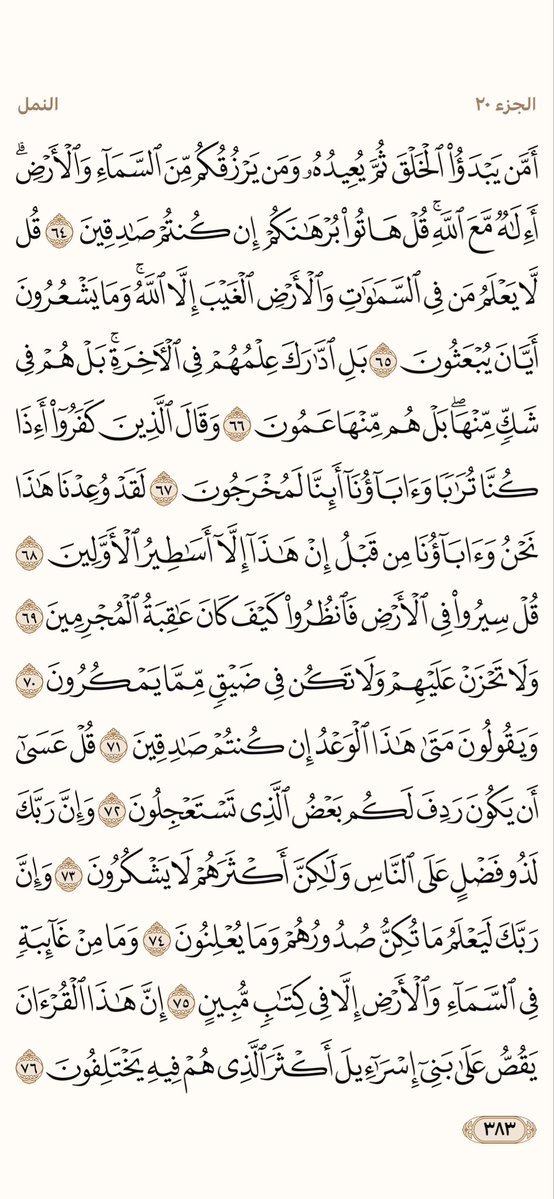 الجزء ٢٠
النمل
أَمَّن يَبْدَؤُا۟ ٱلْخَلْقَ ثُمَّ يُعِيدُهُۥ وَمَن يَرْزُقُكُم مِّنَ ٱلسَّمَآءِ وَٱلْأَرْضِ ۗ
أَءِلَٰهٌ مَّعَ ٱللَّهِ ۚ قُلْ هَاتُوا۟ بُرْهَٰنَكُمْ إِن كُنتُمْ صَٰدِقِينَ ٦٤ قُل
لَّا يَعْلَمُ مَن فِى ٱلسَّمَٰوَٰتِ وَٱلْأَرْضِ ٱلْغَيْبَ إِلَّا ٱللَّهُ ۚ وَمَا يَشْعُرُونَ
أَيَّانَ يُبْعَثُونَ ٦٥ بَلِ ٱدَّٰرَكَ عِلْمُهُمْ فِى ٱلْءَاخِرَةِ ۚ بَلْ هُمْ فِى
شَكٍّ مِّنْهَا ۖ بَلْ هُم مِّنْهَا عَمُونَ ٦٦ وَقَالَ ٱلَّذِينَ كَفَرُوٓا۟ أَءِذَا
كُنَّا تُرَٰبًا وَءَابَآؤُنَآ أَئِنَّا لَمُخْرَجُونَ ٦٧ لَقَدْ وُعِدْنَا هَٰذَا
نَحْنُ وَءَابَآؤُنَا مِن قَبْلُ إِنْ هَٰذَآ إِلَّآ أَسَٰطِيرُ ٱلْأَوَّلِينَ ٦٨
قُلْ سِيرُوا۟ فِى ٱلْأَرْضِ فَٱنظُرُوا۟ كَيْفَ كَانَ عَٰقِبَةُ ٱلْمُجْرِمِينَ ٦٩
وَلَا تَحْزَنْ عَلَيْهِمْ وَلَا تَكُن فِى ضَيْقٍ مِّمَّا يَمْكُرُونَ ٧٠
وَيَقُولُونَ مَتَىٰ هَٰذَا ٱلْوَعْدُ إِن كُنتُمْ صَٰدِقِينَ ٧١ قُلْ عَسَىٰٓ
أَن يَكُونَ رَدِفَ لَكُم بَعْضُ ٱلَّذِى تَسْتَعْجِلُونَ ٧٢ وَإِنَّ رَبَّكَ
لَذُو فَضْلٍ عَلَى ٱلنَّاسِ وَلَٰكِنَّ أَكْثَرَهُمْ لَا يَشْكُرُونَ ٧٣ وَإِنَّ
رَبَّكَ لَيَعْلَمُ مَا تُكِنُّ صُدُورُهُمْ وَمَا يُعْلِنُونَ ٧٤ وَمَا مِنْ غَآئِبَةٍ
فِى ٱلسَّمَآءِ وَٱلْأَرْضِ إِلَّا فِى كِتَٰبٍ مُّبِينٍ ٧٥ إِنَّ هَٰذَا ٱلْقُرْءَانَ
يَقُصُّ عَلَىٰ بَنِىٓ إِسْرَٰٓءِيلَ أَكْثَرَ ٱلَّذِى هُمْ فِيهِ يَخْتَلِفُونَ ٧٦
٣٨٣